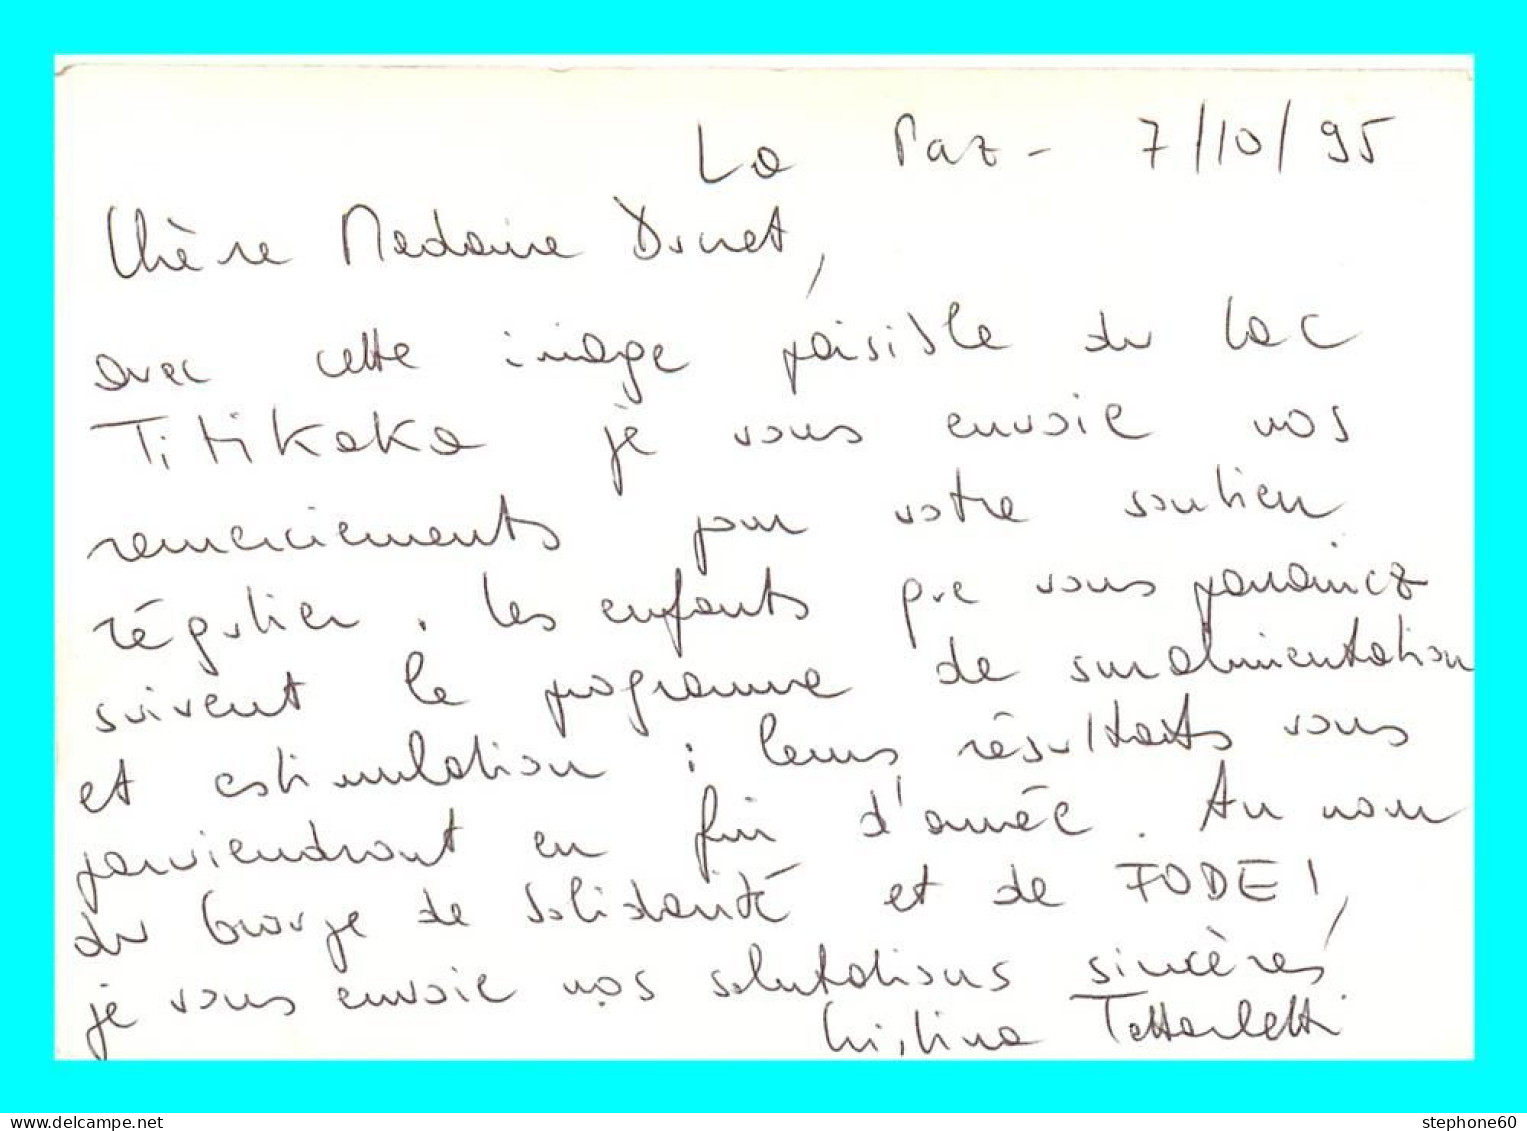 La Paz - 7/10/95
Chère Madame
avec cette image paisible du lac
Titikaka je vous envoie nos
remerciements pour votre soutien
régulier. Les enfants que vous parrainez
suivent le programme de suralimentation
et estimulation : leurs résultats vous
parviendront en fin d'année. Au nom
du de Solidarité et de FODEI,
je vous envoie nos salutations sincères
Cristina
stephone60